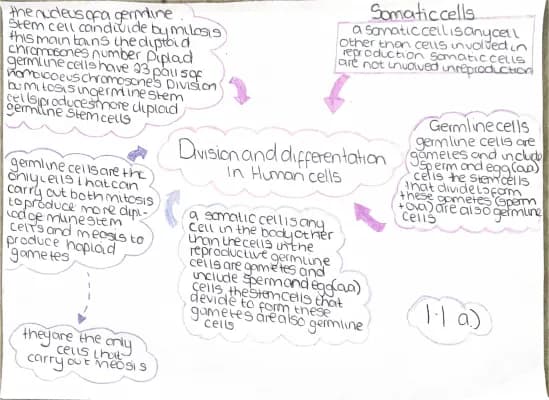 the nucleus of a germline
stem cell can divide by mitosis
this maintains the diploid
chromosones number Diplad
germline cells have 23 pairs of
homologous chromosones Division
by mitosis in germline stem
cells produces more diploid
germline stem cells
Somatic cells
a somatic cell is any cell
other than cells involved in
reproduction somatic cells
are not involved in reproduction
Division and differentation
in Human cells
Germline cells
germline cells are
gametes and include
sperm and egg (ova)
cells the stem cells
that divide to form
these gametes (sperm
+ ova) are also germline
cells
germline cells are the
only cells that can
carry out both mitosis
to produce more dipl-
stem
cells and meosis to
produce haploid
gametes
a somatic cell is any
cell in the body other
than the cells in the
reproductive germline
cells are gametes and
include sperm and egg (ova)
cells, the stem cells that
devide to form these
gametes are also germline
cells
they are the only
cells that
carry out meosis
1.1 a.)